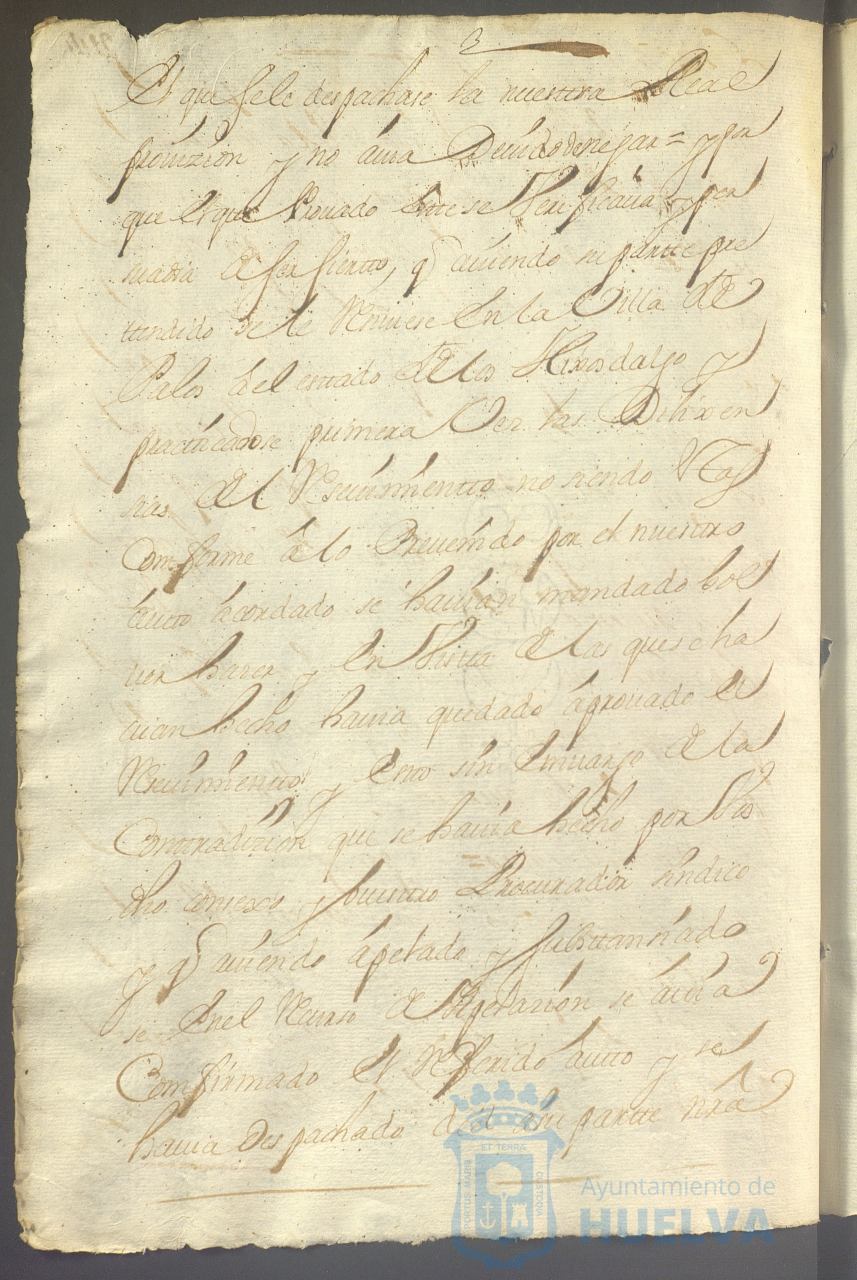 el que se le despachase la nuestra Real
provizion y no avia Devido denegar = y por
que el que Provado este se Verificava y per
suadia a ser sierto, q aviendo su parte pre
tendido se le Reciviese en la Villa de
Palos del estado de los Hixosdalgo y
practicadose primera Vez las Dilixen
sias del Recivimiento no siendo
Conforme a lo Prevenido por el nuestro
auto acordado se havian mandado bol
ver hazer y en Vista de las que se ha
vian hecho havia quedado aprovado el
Recivimiento y esto sin Envargo de la
Contradizion que se havia hecho por
dho consexo, y vuestro Procurador sindico
y q aviendo apelado y substanciado
se en el Recurso de Apelazion se avia
Confirmado el Referido auto y se
havia Despachado a su parte nra
ET TERRÆ
PORTUS MARIS
CUSTODIA
Ayuntamiento de
HUELVA